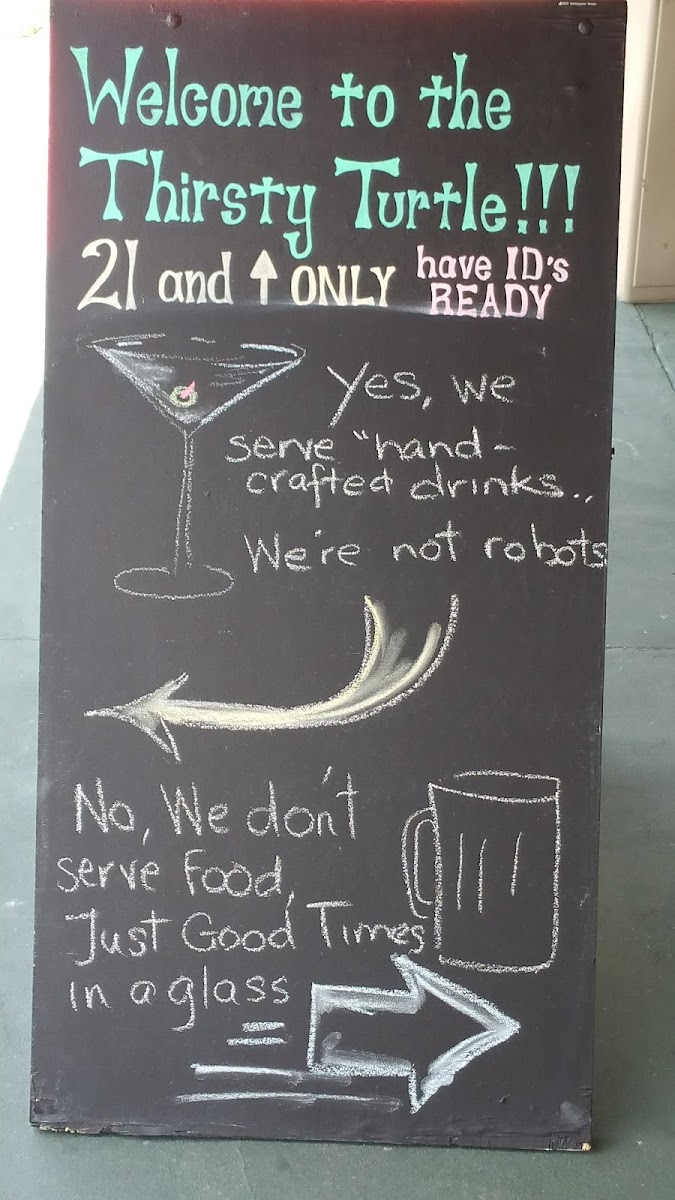 Welcome to the
Thirsty Turtle!!!
21 and ↑ ONLY have ID's READY
Yes, we
serve "hand-
crafted drinks..
We're not robots
No, We don't
serve food,
Just Good Times
in a glass